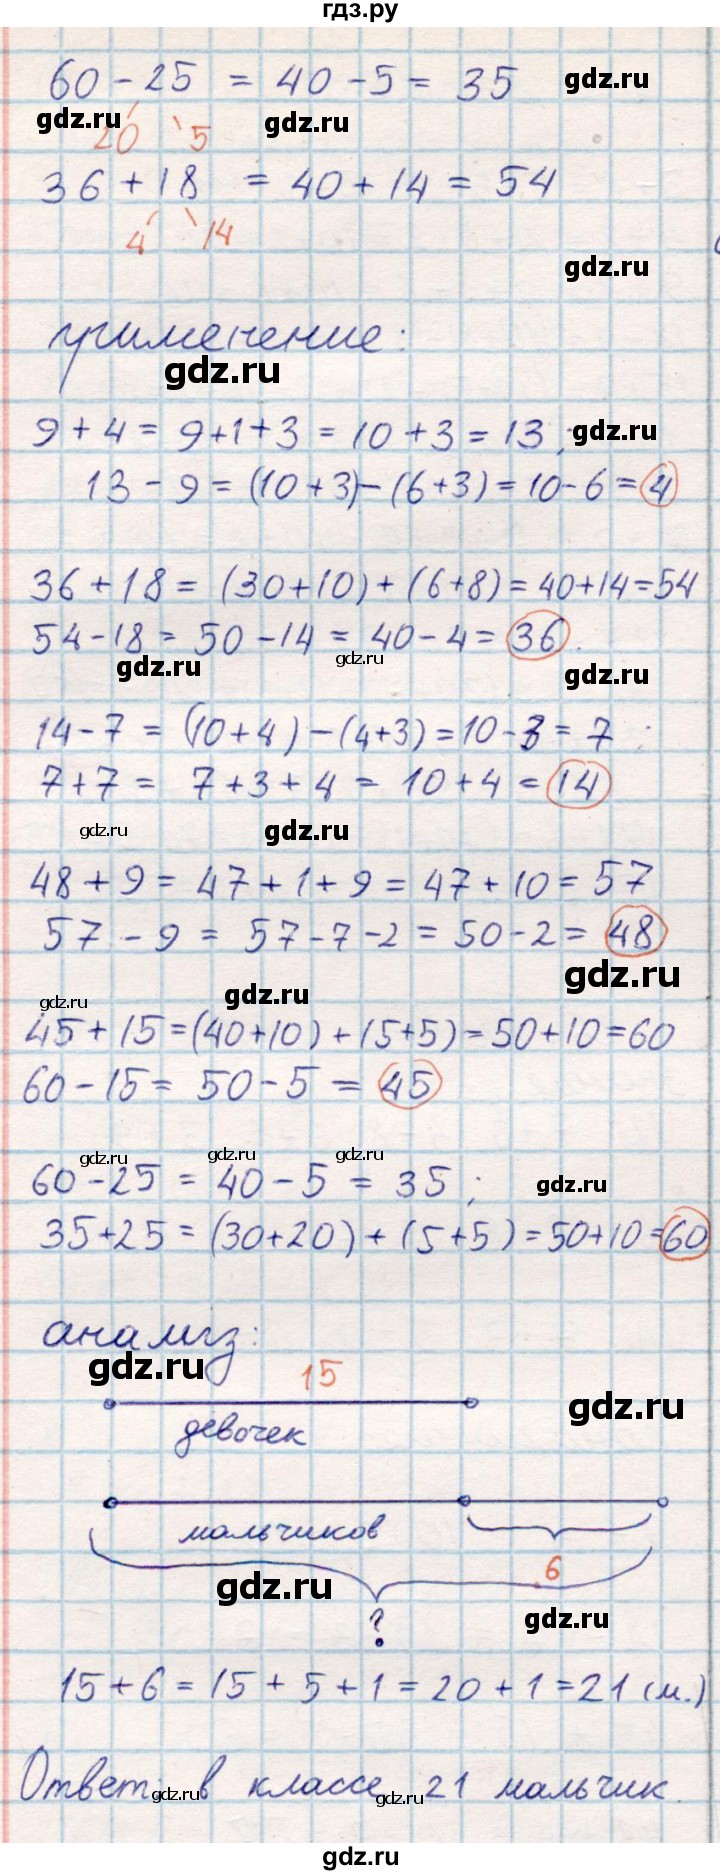 гдз.ру
60 - 25 = 40 - 5 = 35
gdz.ru
gdz.ru
gdz.ru
20 5
36 + 18 = 40 + 14 = 54
4 14
gdz.ru
применение:
gdz.ru
9 + 4 = 9+1+3 = 10 + 3 = 13 ;
gdz.ru
13 - 9 = (10+3)-(6+3) = 10-6 = 4
36 + 18 = (30+10) + (6+8) = 40+14=54
54-18 = 50 - 14 = 40 - 4 = 36.
gdz.ru
gdz.ru
gdz.ru
14 - 7 = (10+4) - (4+3) = 10 - 3 = 7 ;
7 + 7 = 7 + 3 + 4 = 10 + 4 = 14
gdz.ru
gdz.ru
48 + 9 = 47 + 1 + 9 = 47 + 10 = 57
57 - 9 = 57 - 7 - 2 = 50 - 2 = 48
gdz.ru
gdz.ru
gdz.ru
45 + 15 = (40+10) + (5+5) = 50+10=60
60 - 15 = 50 - 5 = 45
gdz.ru
gdz.ru
gdz.ru
60 - 25 = 40 - 5 = 35 ;
gdz.ru
35+25 = (30+20) + (5+5) = 50+10=60
анализ:
gdz.ru
15
gdz.ru
девочек
мальчиков
6
gdz.ru
?
gdz.ru
15 + 6 = 15 + 5 + 1 = 20 + 1 = 21 (м.)
Ответ в классе 21 мальчик.
gdz.ru
gdz.ru
gdz.ru